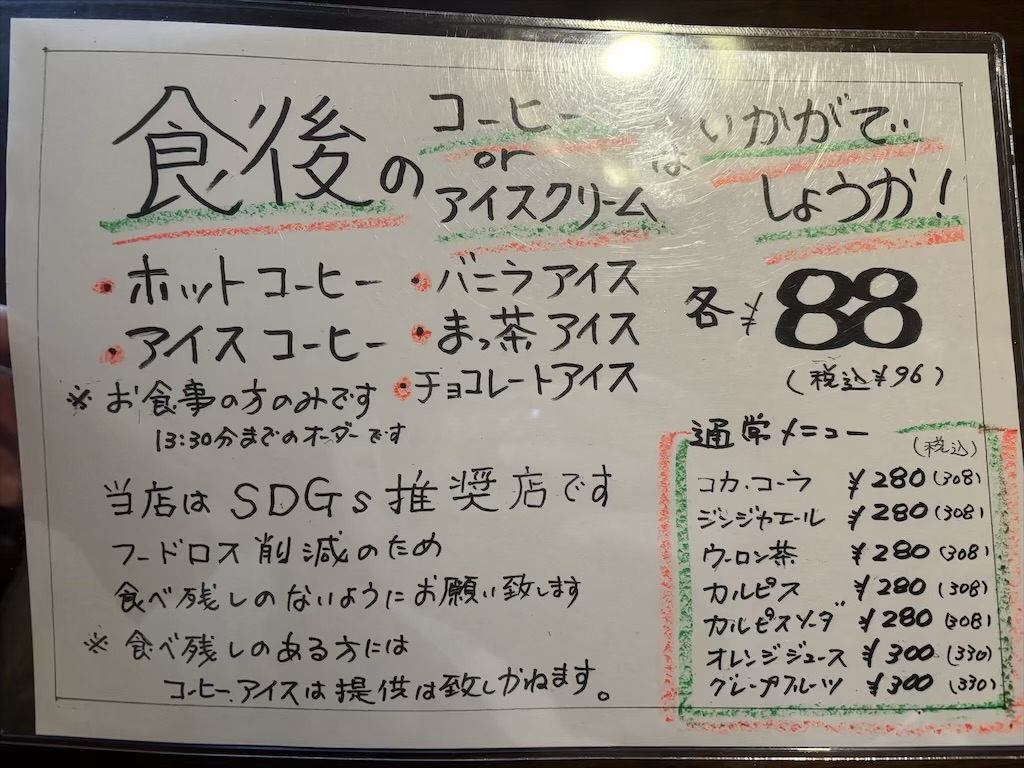 食後の
コーヒー
or
アイスクリーム
は
いかがで
しょうか!
・ホットコーヒー
・アイスコーヒー
・バニラアイス
・まっ茶アイス
・チョコレートアイス
各¥88
(税込¥96)
※お食事の方のみです
13:30分までのオーダーです
当店はSDGs推奨店です
フードロス削減のため
食べ残しのないようにお願い致します
※食べ残しのある方には
コーヒー、アイスは提供は致しかねます。
通常メニュー
(税込)
コカ・コーラ ¥280(308)
ジンジャエール ¥280(308)
ウーロン茶 ¥280(308)
カルピス ¥280(308)
カルピスソーダ ¥280(308)
オレンジジュース ¥300(330)
グレープフルーツ ¥300(330)